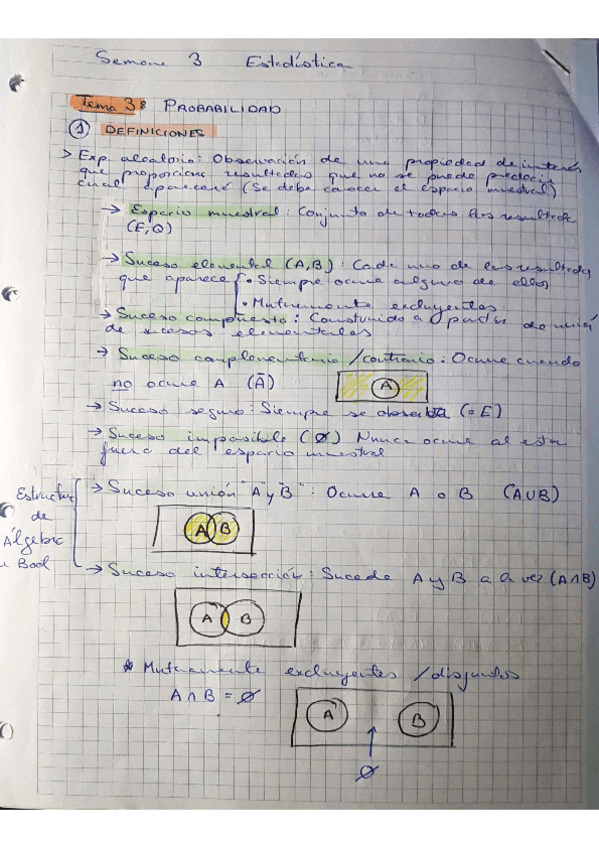 Semana 3 Estadística
Tema 3: PROBABILIDAD
① DEFINICIONES
> Exp. aleatorio: Observación de una propiedad de interés
que proporciona resultados que no se puede predecir
cual aparecerá (Se debe conocer el espacio muestral)
→ Espacio muestral: Conjunto de todos los resultados
(E, Ω)
→ Suceso elemental (A, B): Cada uno de los resultados
que aparece • Siempre ocurre alguno de ellos
• Mutuamente excluyentes
→ Suceso compuesto: Construido a partir de unión
de sucesos elementales
→ Suceso complementario / contrario: Ocurre cuando
no ocurre A (Ā)
A
→ Suceso seguro: Siempre se observa (= E)
→ Suceso imposible (Ø) Nunca ocurre al estar
fuera del espacio muestral
Estructura
de
Álgebra
Bool
→ Suceso unión "A" y "B": Ocurre A o B (A∪B)
A B
→ Suceso intersección: Sucede A y B a la vez (A∩B)
A B
* Mutuamente excluyentes / disjuntos
A ∩ B = Ø
A B
Ø